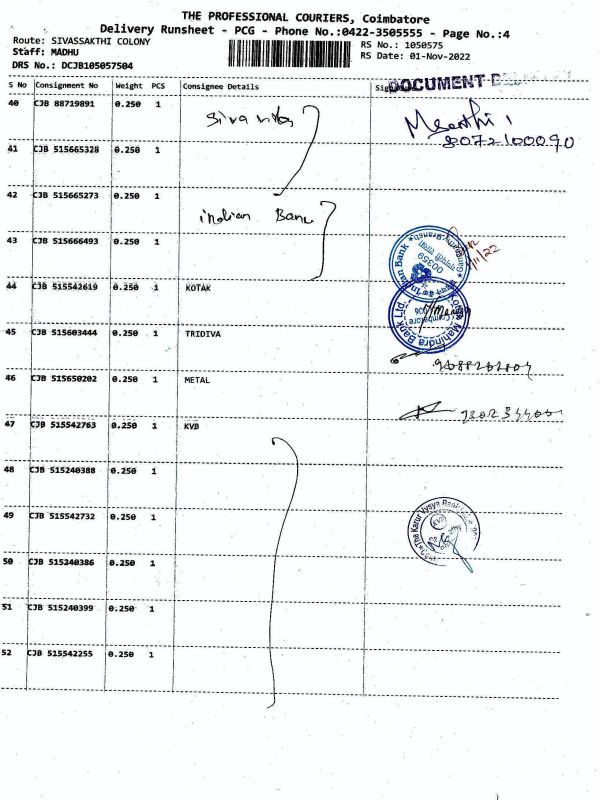 THE PROFESSIONAL COURIERS, Coimbatore
Delivery Runsheet - PCG - Phone No.:0422-3505555 - Page No.:4
Route: SIVASSAKTHI COLONY
Staff: MADHU
DRS No.: DCJB105057504
RS No.: 1050575
RS Date: 01-Nov-2022
S No Consignment No Weight PCS Consignee Details
DOCUMENT
40 CJB 88719891 0.250 1
8072100090
41 CJB 515665328 0.250 1
42 CJB 515665273 0.250 1
indian Bank
43 CJB 515666493 0.250 1
00359
44 CJB 515542619 0.250 1 KOTAK
Mahindra Bank Ltd.
45 CJB 515603444 0.250 1 TRIDIVA
46 CJB 515650202 0.250 1 METAL
47 CJB 515542763 0.250 1 KVB
48 CJB 515240388 0.250 1
49 CJB 515542732 0.250 1
The Karur Vysya Bank
KVB
50 CJB 515240386 0.250 1
51 CJB 515240399 0.250 1
52 CJB 515542255 0.250 1